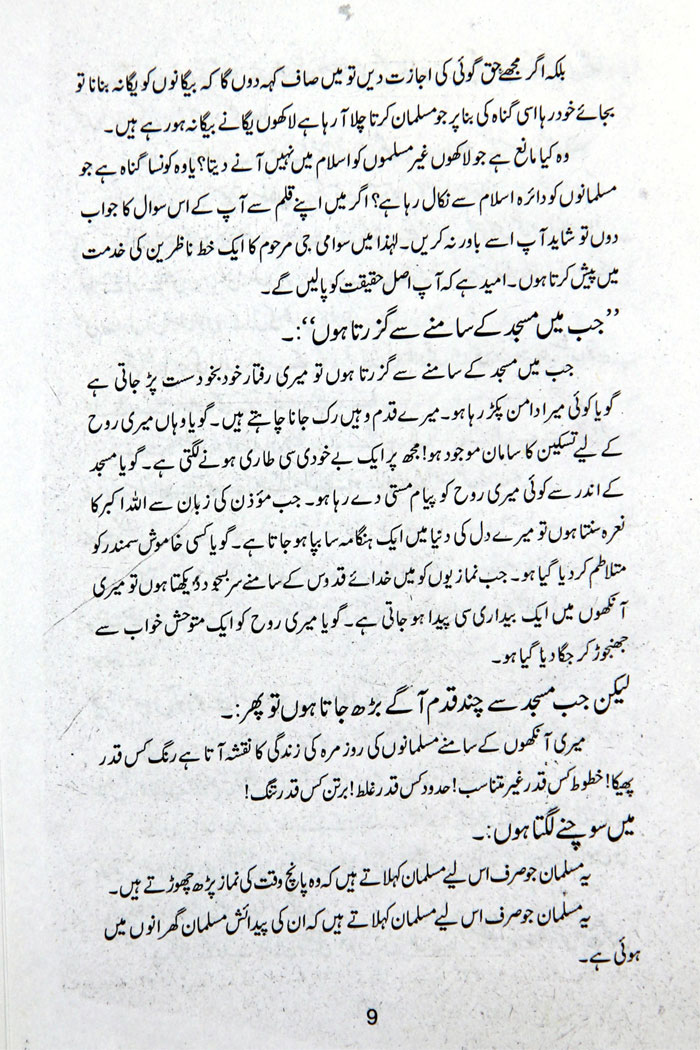 بلکہ اگر مجھے حق گوئی کی اجازت دیں تو میں صاف کہہ دوں گا کہ بیگانوں کو یگانہ بنانا تو
بجائے خود رہا اسی گناہ کی بنا پر جو مسلمان کرتا چلا آ رہا ہے لاکھوں یگانے بیگانہ ہو رہے ہیں۔
وہ کیا مانع ہے جو لاکھوں غیر مسلموں کو اسلام میں نہیں آنے دیتا؟ یا وہ کونسا گناہ ہے جو
مسلمانوں کو دائرہ اسلام سے نکال رہا ہے؟ اگر میں اپنے قلم سے آپ کے اس سوال کا جواب
دوں تو شاید آپ اسے باور نہ کریں۔ لہٰذا میں سوامی جی مرحوم کا ایک خط ناظرین کی خدمت
میں پیش کرتا ہوں۔ امید ہے کہ آپ اصل حقیقت کو پالیں گے۔
”جب میں مسجد کے سامنے سے گزرتا ہوں“:۔
جب میں مسجد کے سامنے سے گزرتا ہوں تو میری رفتار خود بخود سست پڑ جاتی ہے
گویا کوئی میرا دامن پکڑ رہا ہو۔ میرے قدم وہیں رک جانا چاہتے ہیں۔ گویا وہاں میری روح
کے لیے تسکین کا سامان موجود ہو! مجھ پر ایک بے خودی سی طاری ہونے لگتی ہے۔ گویا مسجد
کے اندر سے کوئی میری روح کو پیام مستی دے رہا ہو۔ جب مؤذن کی زبان سے اللہ اکبر کا
نعرہ سنتا ہوں تو میرے دل کی دنیا میں ایک ہنگامہ سا بپا ہو جاتا ہے۔ گویا کسی خاموش سمندر کو
متلاطم کر دیا گیا ہو۔ جب نمازیوں کو میں خدائے قدوس کے سامنے سر بسجود دیکھتا ہوں تو میری
آنکھوں میں ایک بیداری سی پیدا ہو جاتی ہے۔ گویا میری روح کو ایک متوحش خواب سے
جھنجوڑ کر جگا دیا گیا ہو۔
لیکن جب مسجد سے چند قدم آگے بڑھ جاتا ہوں تو پھر:۔
میری آنکھوں کے سامنے مسلمانوں کی روز مرہ کی زندگی کا نقشہ آتا ہے رنگ کس قدر
پھیکا! خطوط کس قدر غیر متناسب! حدود کس قدر غلط! برتن کس قدر تنگ!
میں سوچنے لگتا ہوں:۔
یہ مسلمان جو صرف اس لیے مسلمان کہلاتے ہیں کہ وہ پانچ وقت کی نماز پڑھ چھوڑتے ہیں۔
یہ مسلمان جو صرف اس لیے مسلمان کہلاتے ہیں کہ ان کی پیدائش مسلمان گھرانوں میں
ہوئی ہے۔
9